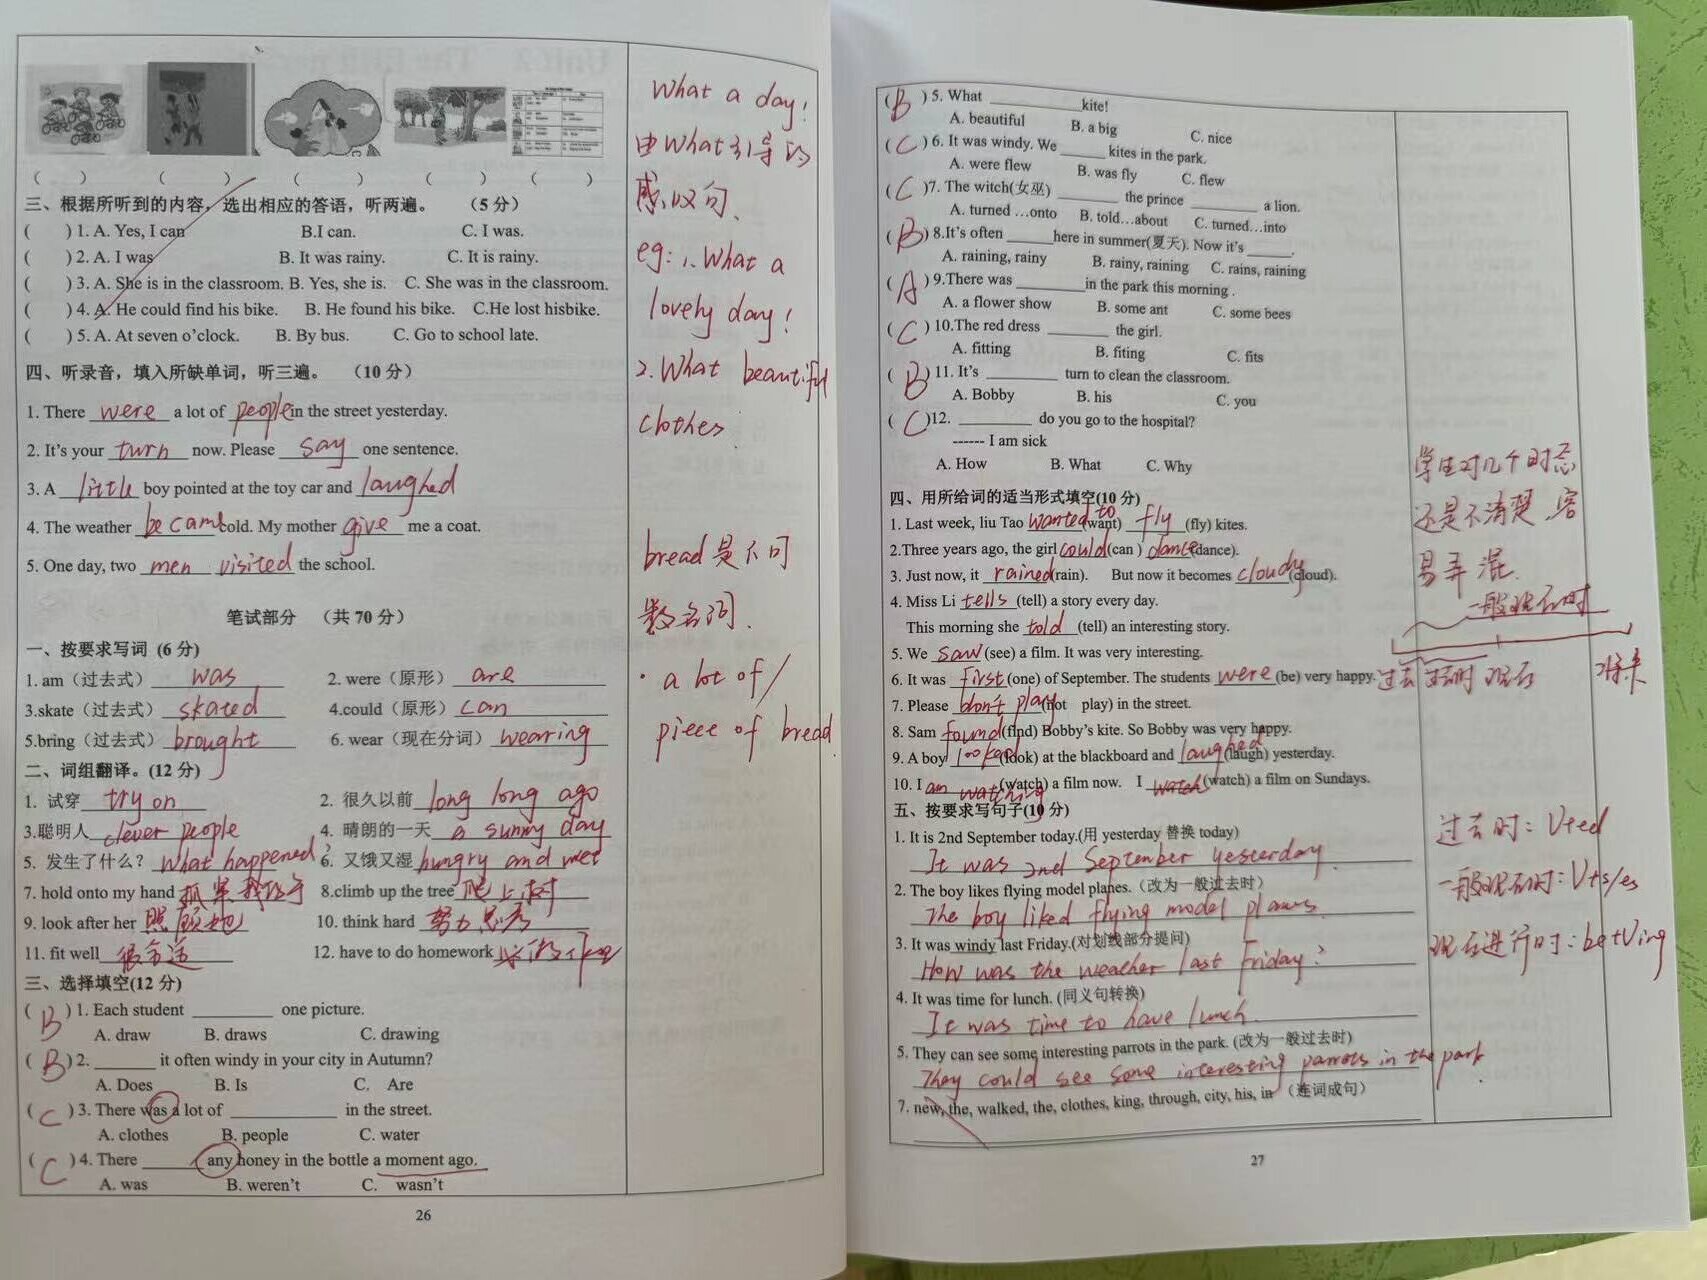 (    ) (    ) (    ) (    ) (    )
三、根据所听到的内容，选出相应的答语，听两遍。 （5 分）
(    ) 1. A. Yes, I can B.I can. C. I was.
(    ) 2. A. I was B. It was rainy. C. It is rainy.
(    ) 3. A. She is in the classroom. B. Yes, she is. C. She was in the classroom.
(    ) 4. A. He could find his bike. B. He found his bike. C.He lost hisbike.
(    ) 5. A. At seven o’clock. B. By bus. C. Go to school late.
四、听录音，填入所缺单词，听三遍。 （10 分）
1. There were a lot of people in the street yesterday.
2. It’s your turn now. Please say one sentence.
3. A little boy pointed at the toy car and laughed
4. The weather became cold. My mother give me a coat.
5. One day, two men visited the school.
笔试部分 （共 70 分）
一、按要求写词 (6 分)
1. am（过去式） was 2. were（原形） are
3.skate（过去式） skated 4.could（原形） can
5.bring（过去式） brought 6. wear（现在分词） wearing
二、词组翻译。(12 分)
1. 试穿 try on 2. 很久以前 long long ago
3.聪明人 clever people 4. 晴朗的一天 a sunny day
5. 发生了什么？ What happened? 6. 又饿又湿 hungry and wet
7. hold onto my hand 抓紧我的手 8.climb up the tree 爬上树
9. look after her 照顾她 10. think hard 努力思考
11. fit well 很合适 12. have to do homework 必须做作业
三、选择填空(12 分)
( B ) 1. Each student ________ one picture.
A. draw B. draws C. drawing
( B ) 2. ______ it often windy in your city in Autumn?
A. Does B. Is C. Are
( C ) 3. There was a lot of ________ in the street.
A. clothes B. people C. water
( C ) 4. There ______ any honey in the bottle a moment ago.
A. was B. weren’t C. wasn’t
26
What a day!
由What引导的
感叹句、
eg: 1. What a
lovely day!
2. What beautiful
clothes
bread是不可
数名词.
· a lot of /
piece of bread
( B ) 5. What ________ kite!
A. beautiful B. a big C. nice
( C ) 6. It was windy. We _____ kites in the park.
A. were flew B. was fly C. flew
( C )7. The witch(女巫) ______ the prince ______ a lion.
A. turned …onto B. told…about C. turned…into
( B ) 8.It’s often _____here in summer(夏天). Now it’s _____.
A. raining, rainy B. rainy, raining C. rains, raining
( A ) 9.There was ________in the park this morning .
A. a flower show B. some ant C. some bees
( C ) 10.The red dress ______ the girl.
A. fitting B. fiting C. fits
( B ) 11. It’s ________ turn to clean the classroom.
A. Bobby B. his C. you
( C )12. ________ do you go to the hospital?
------ I am sick
A. How B. What C. Why
四、用所给词的适当形式填空(10 分)
1. Last week, liu Tao wanted to (want) fly (fly) kites.
2.Three years ago, the girl could (can ) dance (dance).
3. Just now, it rained (rain). But now it becomes cloudy (cloud).
4. Miss Li tells (tell) a story every day.
This morning she told (tell) an interesting story.
5. We saw (see) a film. It was very interesting.
6. It was first (one) of September. The students were (be) very happy.
7. Please don't play (not play) in the street.
8. Sam found (find) Bobby’s kite. So Bobby was very happy.
9. A boy looked (look) at the blackboard and laughed (laugh) yesterday.
10. I am watching (watch) a film now. I watch (watch) a film on Sundays.
五、按要求写句子(10 分)
1. It is 2nd September today.(用 yesterday 替换 today)
It was 2nd September yesterday.
2. The boy likes flying model planes.（改为一般过去时）
The boy liked flying model planes.
3. It was windy last Friday.(对划线部分提问)
How was the weather last Friday?
4. It was time for lunch. (同义句转换)
It was time to have lunch.
5. They can see some interesting parrots in the park. (改为一般过去时)
They could see some interesting parrots in the park.
7. new, the, walked, the, clothes, king, through, city, his, in （连词成句）
27
学生对几个时态
还是不清楚,容
易弄混.
一般现在时
过去 过去时 现在 将来
过去时: V+ed
一般现在时: V+s/es
现在进行时: be+Ving